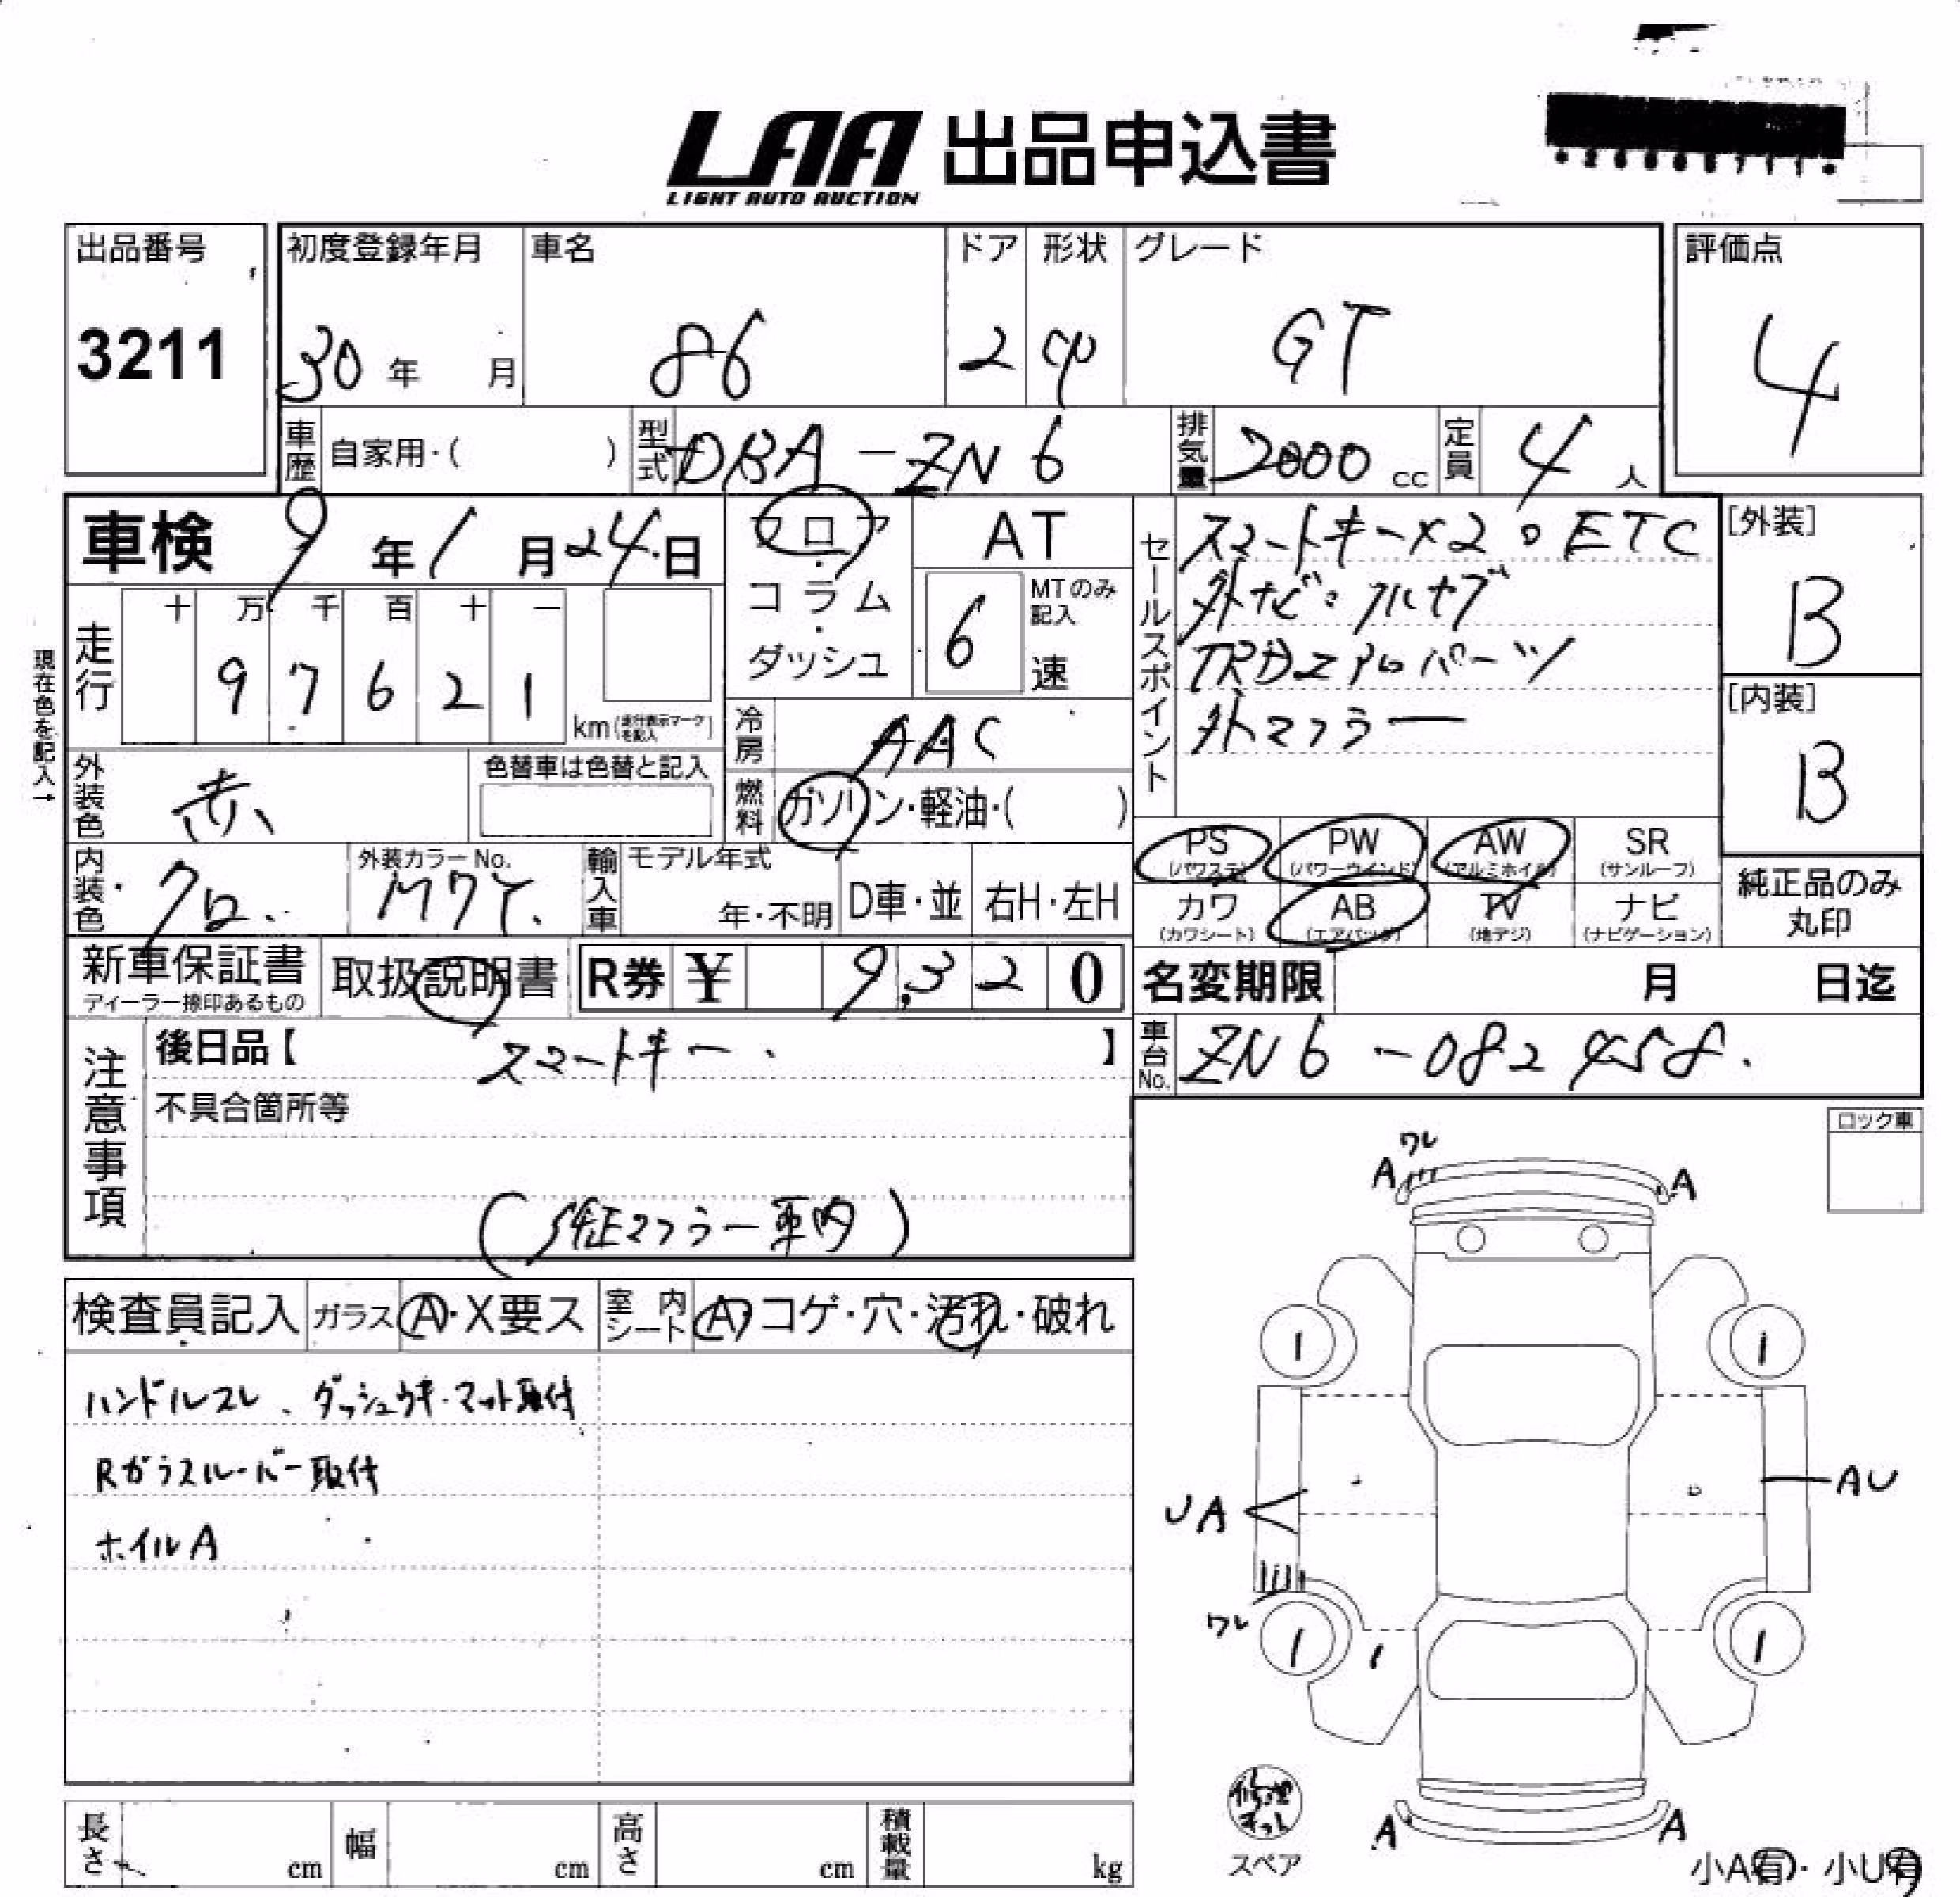 LAA 出品申込書
LIGHT AUTO AUCTION
出品番号
3211
初度登録年月
30年 月
車名
86
ドア
2
形状
cp
グレード
GT
評価点
4
車歴 自家用・( )
型式 DBA-ZN6
排気量 2000 cc
定員 4 人
車検 9年1月24日
フロア・コラム・ダッシュ
AT
6 速
MTのみ記入
走行
十 万 千 百 十 一
9 7 6 2 1
km (走行表示マークを記入)
現在色を記入→
外装色 赤
色替車は色替と記入
冷房 AAC
燃料 ガソリン・軽油・( )
内装色 クロ
外装カラーNo. M7Y
輸入車 モデル年式
年・不明
D車・並
右H・左H
セールスポイント
スマートキー×2。ETC
外ナビ:フルセグ
TRDエアロパーツ
外マフラー
[外装]
B
[内装]
B
PS (パワステ)
PW (パワーウインド)
AW (アルミホイル)
SR (サンルーフ)
カワ (カワシート)
AB (エアバッグ)
TV (地デジ)
ナビ (ナビゲーション)
純正品のみ丸印
新車保証書
ディーラー捺印あるもの
取扱説明書
R券 ¥ 9,320
名変期限 月 日迄
車台No. ZN6-082458.
注意事項
後日品【 スマートキー 】
不具合箇所等
(純正マフラー車内)
ロック車
検査員記入
ガラス A・X要ス
室内シート A・コゲ・穴・汚れ・破れ
ハンドルスレ、ダッシュウキ・マット取付
Rガラスルーバー取付
ホイルA
ワレ
A
A
UA
AU
ワレ
A
A
修理キット
スペア
小A有・小U有
長さ cm
幅 cm
高さ cm
積載量 kg